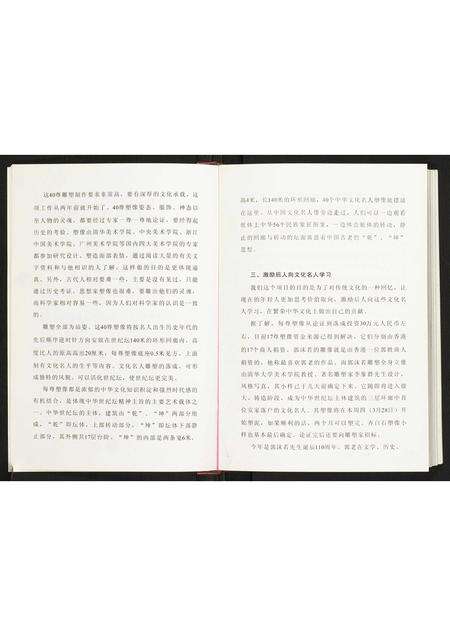 这40尊雕塑制作要求非常高，要有深厚的文化承载，这
项工作从两年前就开始了。40尊塑像姿态、服饰、神态信
至人物的灵魂，都要经过专家一尊一尊地论证，要经得起
历史的考验。塑像由清华美术学院、中央美术学院、浙江
中国美术学院、广州美术学院等国内四大美术学院的专家
都参加研究设计，塑造前部表情，通过阅读大量的有关文
字资料和与他相识的人了解，这样做的目的是更体现逼
真。另外，古代人相对要难一些，主要是没有见过，只能
通过历史考证，思想家塑像也很难，要雕出他们的灵魂，
而科学家相对容易一些，因为人们对科学家的认识是一致
的。
雕塑全部为面姿，这40尊塑像将按名人出生的史年代的
先后顺序逆时针方向安放在世纪坛140米的环形回廊内，高
度比人的原真高出20厘米，每尊塑像底座0.5米见方，上面
刻有文化名人的生平等内容。文化名人雕塑的落成，可形
成独特的风貌，可以活化世纪坛，使世纪坛更完美。
每尊塑像都是浓郁的中华文化知识和强烈时代感的
有机结合，是体现中华世纪坛精神主旨的主要艺术载体之
一。中华世纪坛的主体，建筑由“乾”、“坤”两部分组
成，“乾”即坛体，上部转动部分，“坤”即坛体下部静
止部分，其外侧共17层台阶。“坤”的内部是两条宽6米、
高4米、长140米的环形回廊，40个中华文化名人塑像就摆放
在这里，从中国文化名人像旁边走过，人们可以一边朝看
坛体上中华56个民族家居图案，一边体会坛体的转动，
静止的回廊与转动的坛面寓意着中国古老的“乾”、“坤”
思想。
三、激励后人向文化名人学习
我们这个项目的目的是为了对传统文化的一种回忆，让
现在的年轻人更加思考价值取向，激励后人向这些文化名
人学习，在繁荣中华文化上做出自己的贡献。
据了解，每尊塑像从论证到落成投资30万元人民币左
右，目前17尊塑像资金来源已得到解决，它们分别由香港
的17个商人捐资。郭沫若的雕像就是由香港一位郭姓商人
捐资的，他称最喜欢郭老的作品。而郭沫若雕塑全身立像
由清华大学美术学院教授、著名雕塑家李象群先生设计，
风格写真，其小样已于几天前确定下来，它随即将进入放
大、铸造阶段，成为中华世纪坛主体建筑的三层环廊中首
位安家落户的文化名人，其塑像将在本周四（3月28日）开
始塑泥，如果顺利的话，两个月可以塑完。齐白石塑像小
样也基本最后确定，论证完后还要向雕塑家招标。
今年是郭沫若先生诞辰110周年，郭老在文学、历史、